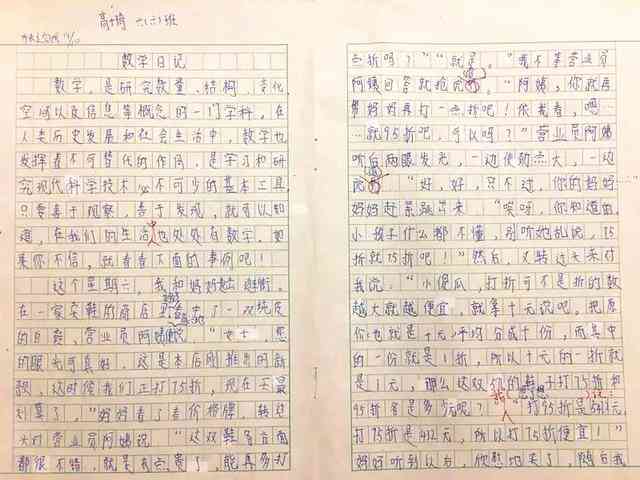 六(二)班
数学日记
数学,是研究数量、结构、变化、
空间以及信息等概念的一门学科,在
人类历史发展和社会生活中,数学也
发挥着不可替代的作用,是学习和研
究现代科学技术必不可少的基本工具,
只要善于观察,善于发现,就可以知
道,在我们的生活中也处处有数学,如
果你不信,就看看下面的事例吧!
这个星期六,我和妈妈 逛街。
在一家卖鞋的商店 了一双纯皮
的白鞋、营业员阿姨 :“女士,您
的眼光可真好,这是本店刚推出的新
款,这时候我们正打75折,现在买最
划算了,”妈妈看了看价格牌,转过
头对营业员阿姨说:“这双鞋各方面
都很不错,就是有点贵了,能再多打
点折吗?”“就是。”我不等营业员
阿姨回答就抢 道,“阿姨,你就再
帮妈妈再打一点折吧!依我看,吧…
…就95折吧,可以吗?”营业员阿姨
听后两眼发光,一边使劲点头,一边
说道“好,好,只不过,你的妈妈
妈妈赶紧跳出来“哎呀,你知道的,
小孩子什么都不懂,别听她乱说,75
折就75折吧!”然后,又转过头来对
我说:“小傻瓜,打折可不是折的数
越大就越便宜,就拿十元说吧。把原
价也就是十元平均分成十份,而其中
的一份就是1折,所以十元的一折就
是1元,那么这双 鞋子打75折和
95折各是多少元呢?”“打95折是 元,
打75折是412元,所以打75折便宜!”
妈妈听到以后,欣慰地笑了,随后我